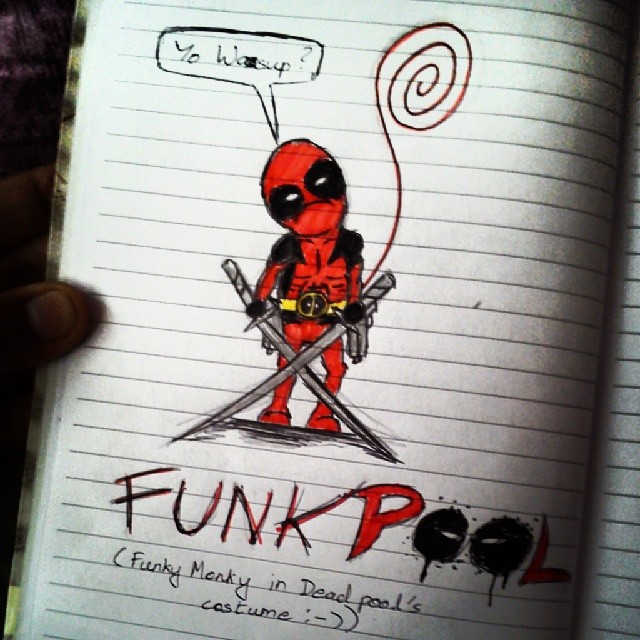 Yo Wassup?
FUNKPOOL
(Funky Monky in Deadpool's
costume :-))